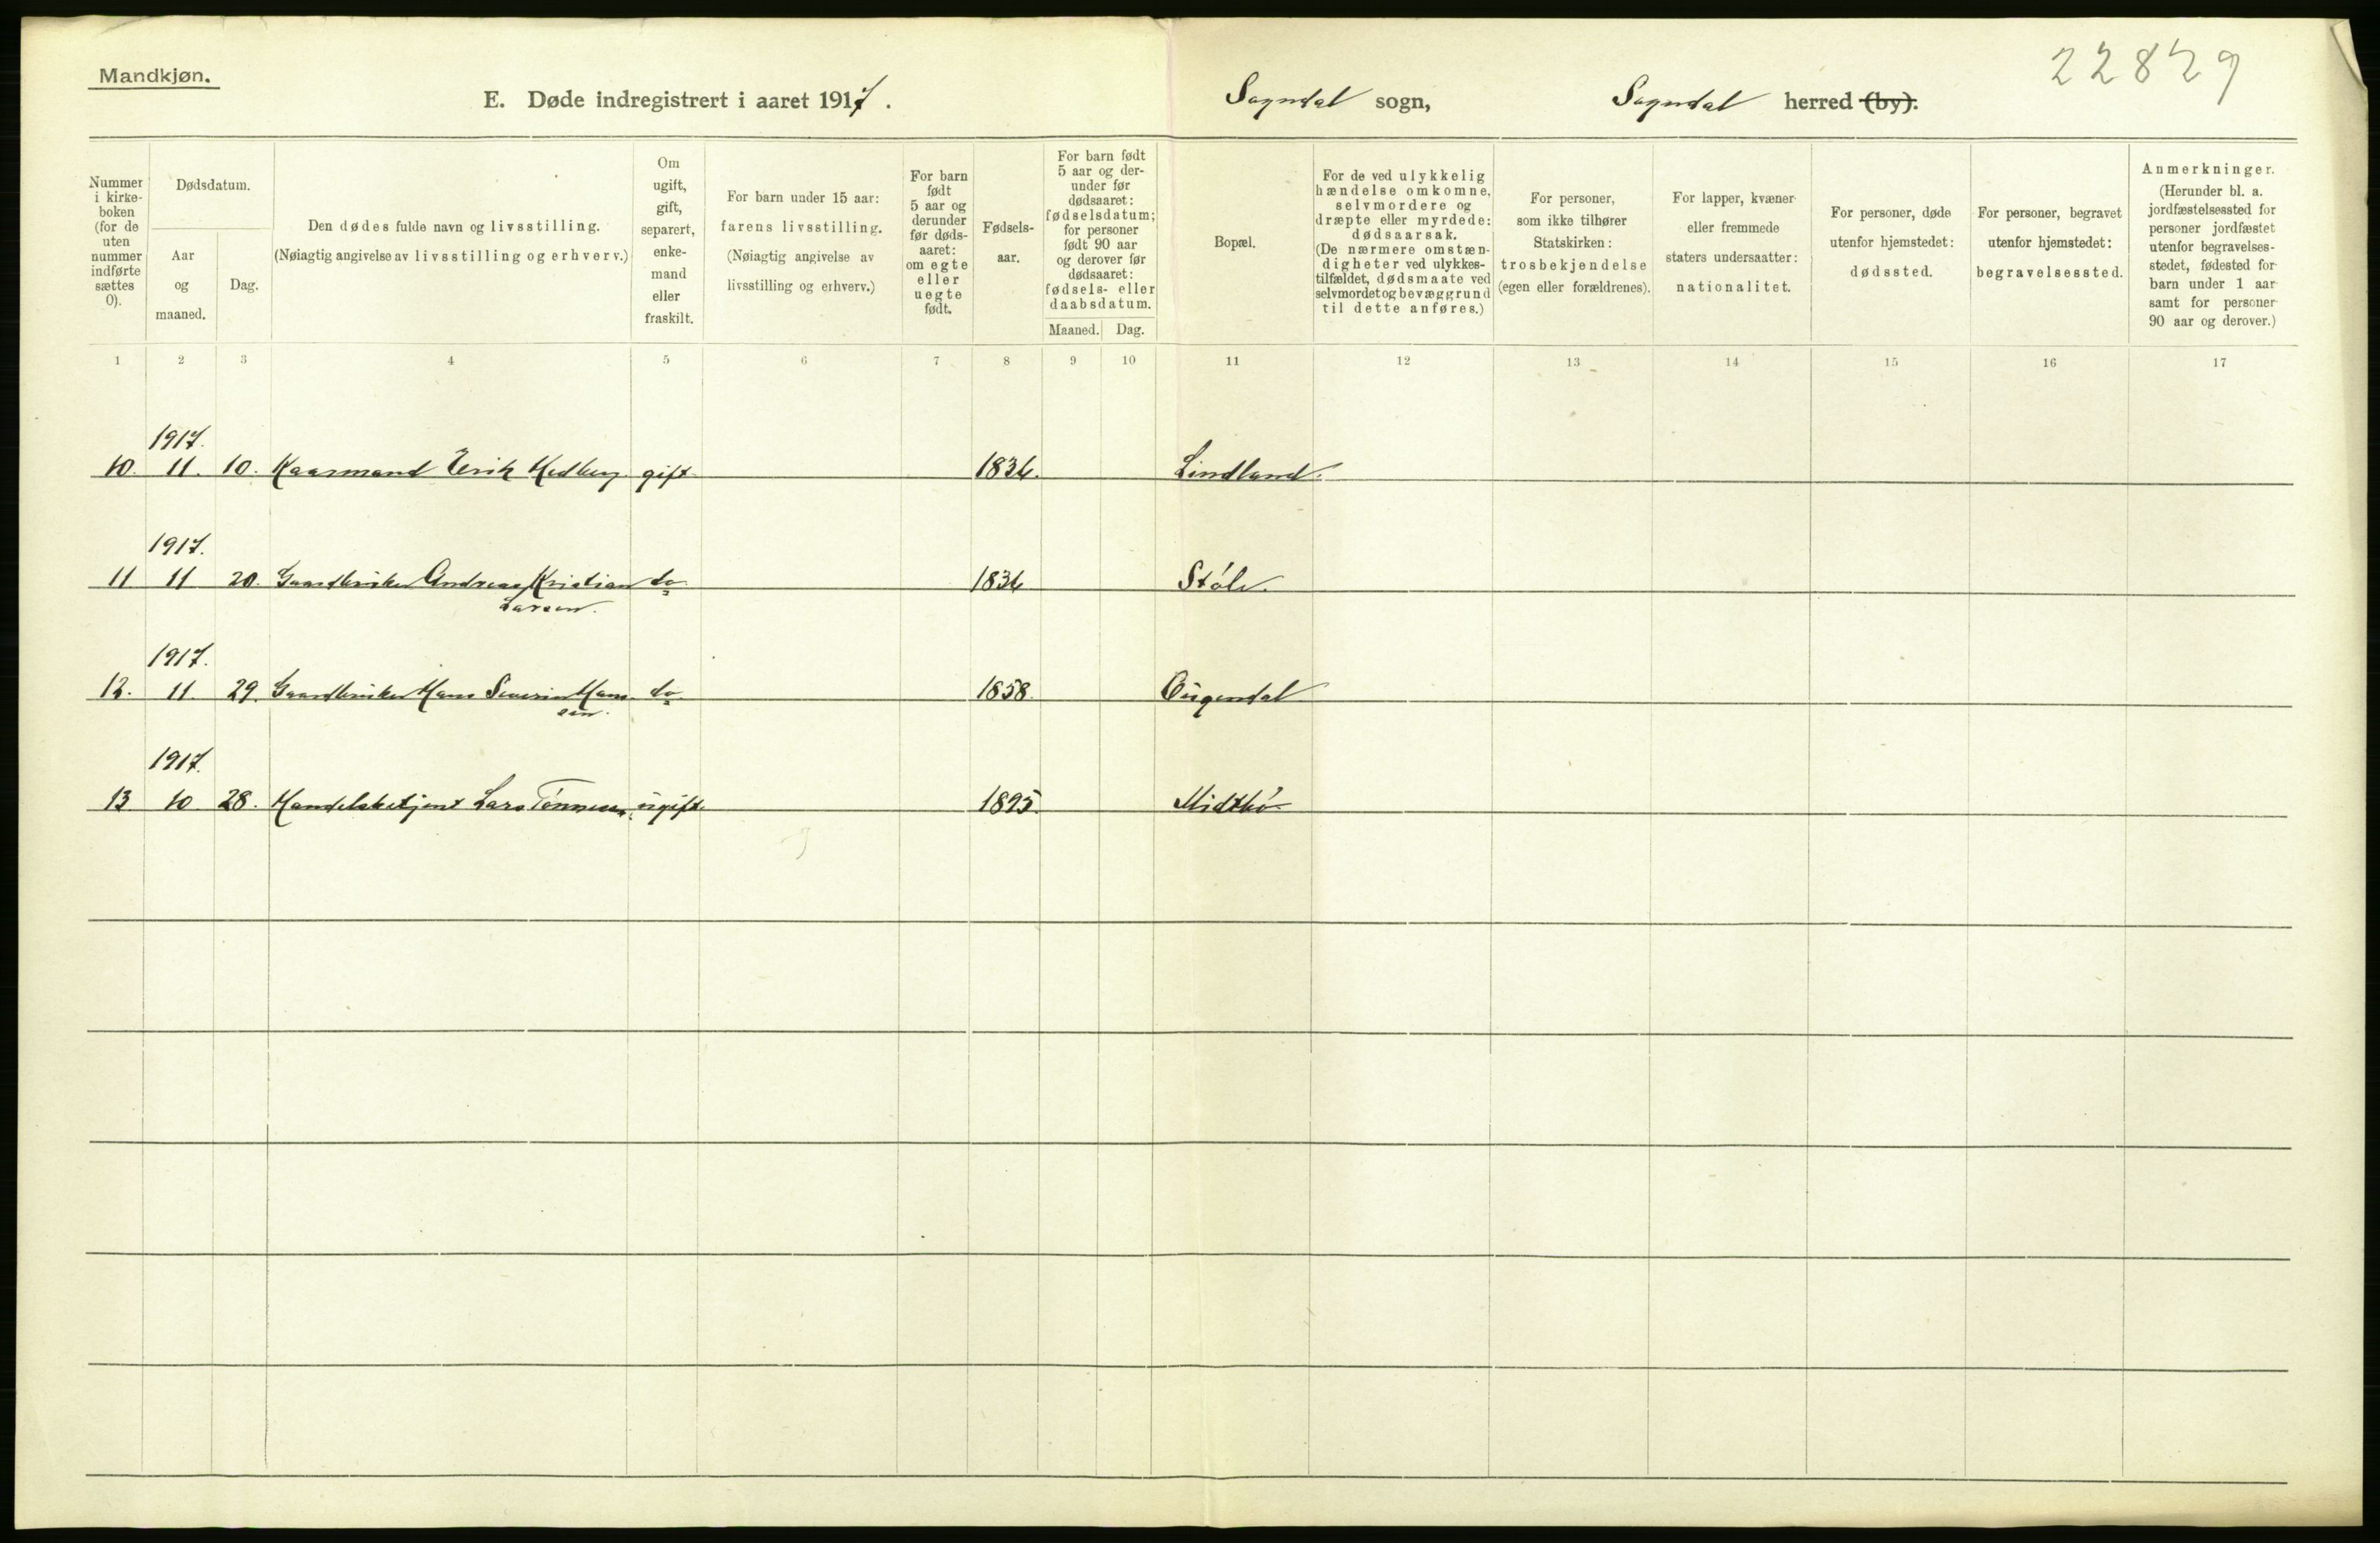 Mandkjøn.
22829
E. Døde indregistrert i aaret 1917. Sogndal sogn, Sogndal herred (by).
Nummer i kirke-boken (for de uten nummer indførte sættes 0).
Dødsdatum.
Aar og maaned.
Dag.
Den dødes fulde navn og livsstilling.
(Nøiagtig angivelse av livsstilling og erhverv.)
Om ugift, gift, separert, enke-mand eller fraskilt.
For barn under 15 aar:
farens livsstilling.
(Nøiagtig angivelse av livsstilling og erhverv.)
For barn født 5 aar og derunder før døds-aaret: om egte eller uegte født.
Fødsels-aar.
For barn født 5 aar og der-under før dødsaaret: fødselsdatum; for personer født 90 aar og derover før dødsaaret: fødsels- eller daabsdatum.
Maaned. Dag.
Bopæl.
For de ved ulykkelig hændelse omkomne, selvmordere og dræpte eller myrdede: dødsaarsak. (De nærmere omstæn-digheter ved ulykkes-tilfældet, dødsmaate ved selvmordet og bevæggrund til dette anføres.)
For personer, som ikke tilhører Statskirken: trosbekjendelse (egen eller forældrenes).
For lapper, kvæner eller fremmede staters undersaatter: nationalitet.
For personer, døde utenfor hjemstedet: dødssted.
For personer, begravet utenfor hjemstedet: begravelsessted.
Anmerkninger.
(Herunder bl. a. jordfæstelsessted for personer jordfæstet utenfor begravelses-stedet, fødested for barn under 1 aar samt for personer 90 aar og derover.)
1 2 3 4 5 6 7 8 9 10 11 12 13 14 15 16 17
1917.
10. 11. 10. Kaarmand Erik Hedberg gift 1834. Lindland.
1917.
11 11 20. Gaardbruker Andreas Kristian do 1834 Støle.
Larsen.
1917.
12. 11. 29. Gaardbruker Hans Severin Han- do 1858.
sen.
1917.
13 10 28. Handelsbetjent Lars Tønnesen. ugift 1895. Midtbø